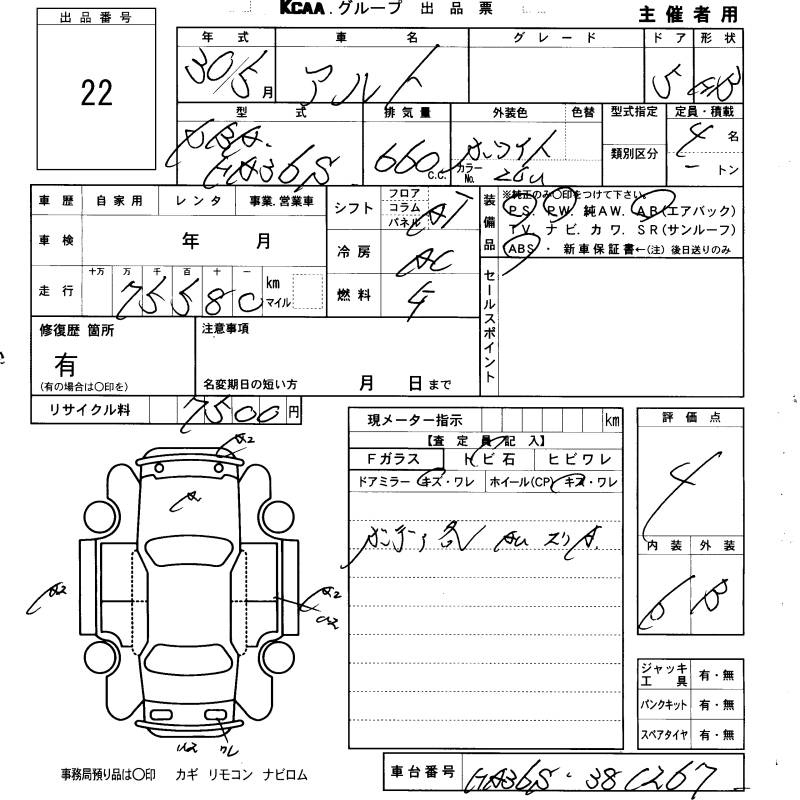 KCAA.グループ 出品票
主催者用
出品番号
22
年式 車名 グレード ドア 形状
30/5月 アルト 5 HB
型式 排気量 外装色 色替 型式指定 定員・積載
DBA- HA36S 660C.C. ホワイト カラーNo. 類別区分 4名
トン
車歴 自家用 レンタ 事業.営業車
シフト フロア コラム パネル AT
車検 年 月
冷房 AC
走行 十万 万 千 百 十 一 km マイル
75580
燃料
装備品
※純正のみ○印をつけて下さい。
PS. PW. 純AW. AB(エアバック)
TV. ナビ. カワ. SR(サンルーフ)
ABS ・ 新車保証書←(注)後日送りのみ
セールスポイント
修復歴 箇所
有
(有の場合は○印を)
注意事項
名変期日の短い方 月 日まで
リサイクル料 7500円
現メーター指示 km
【査定員記入】
Fガラス トビ石 ヒビワレ
ドアミラー キズ・ワレ ホイール(CP) キズ・ワレ
評価点
4
内装 外装
B
A2
A
A2
A2
ワレ
ジャッキ工具 有・無
パンクキット 有・無
スペアタイヤ 有・無
事務局預り品は○印 カギ リモコン ナビロム
車台番号 HA36S-380267